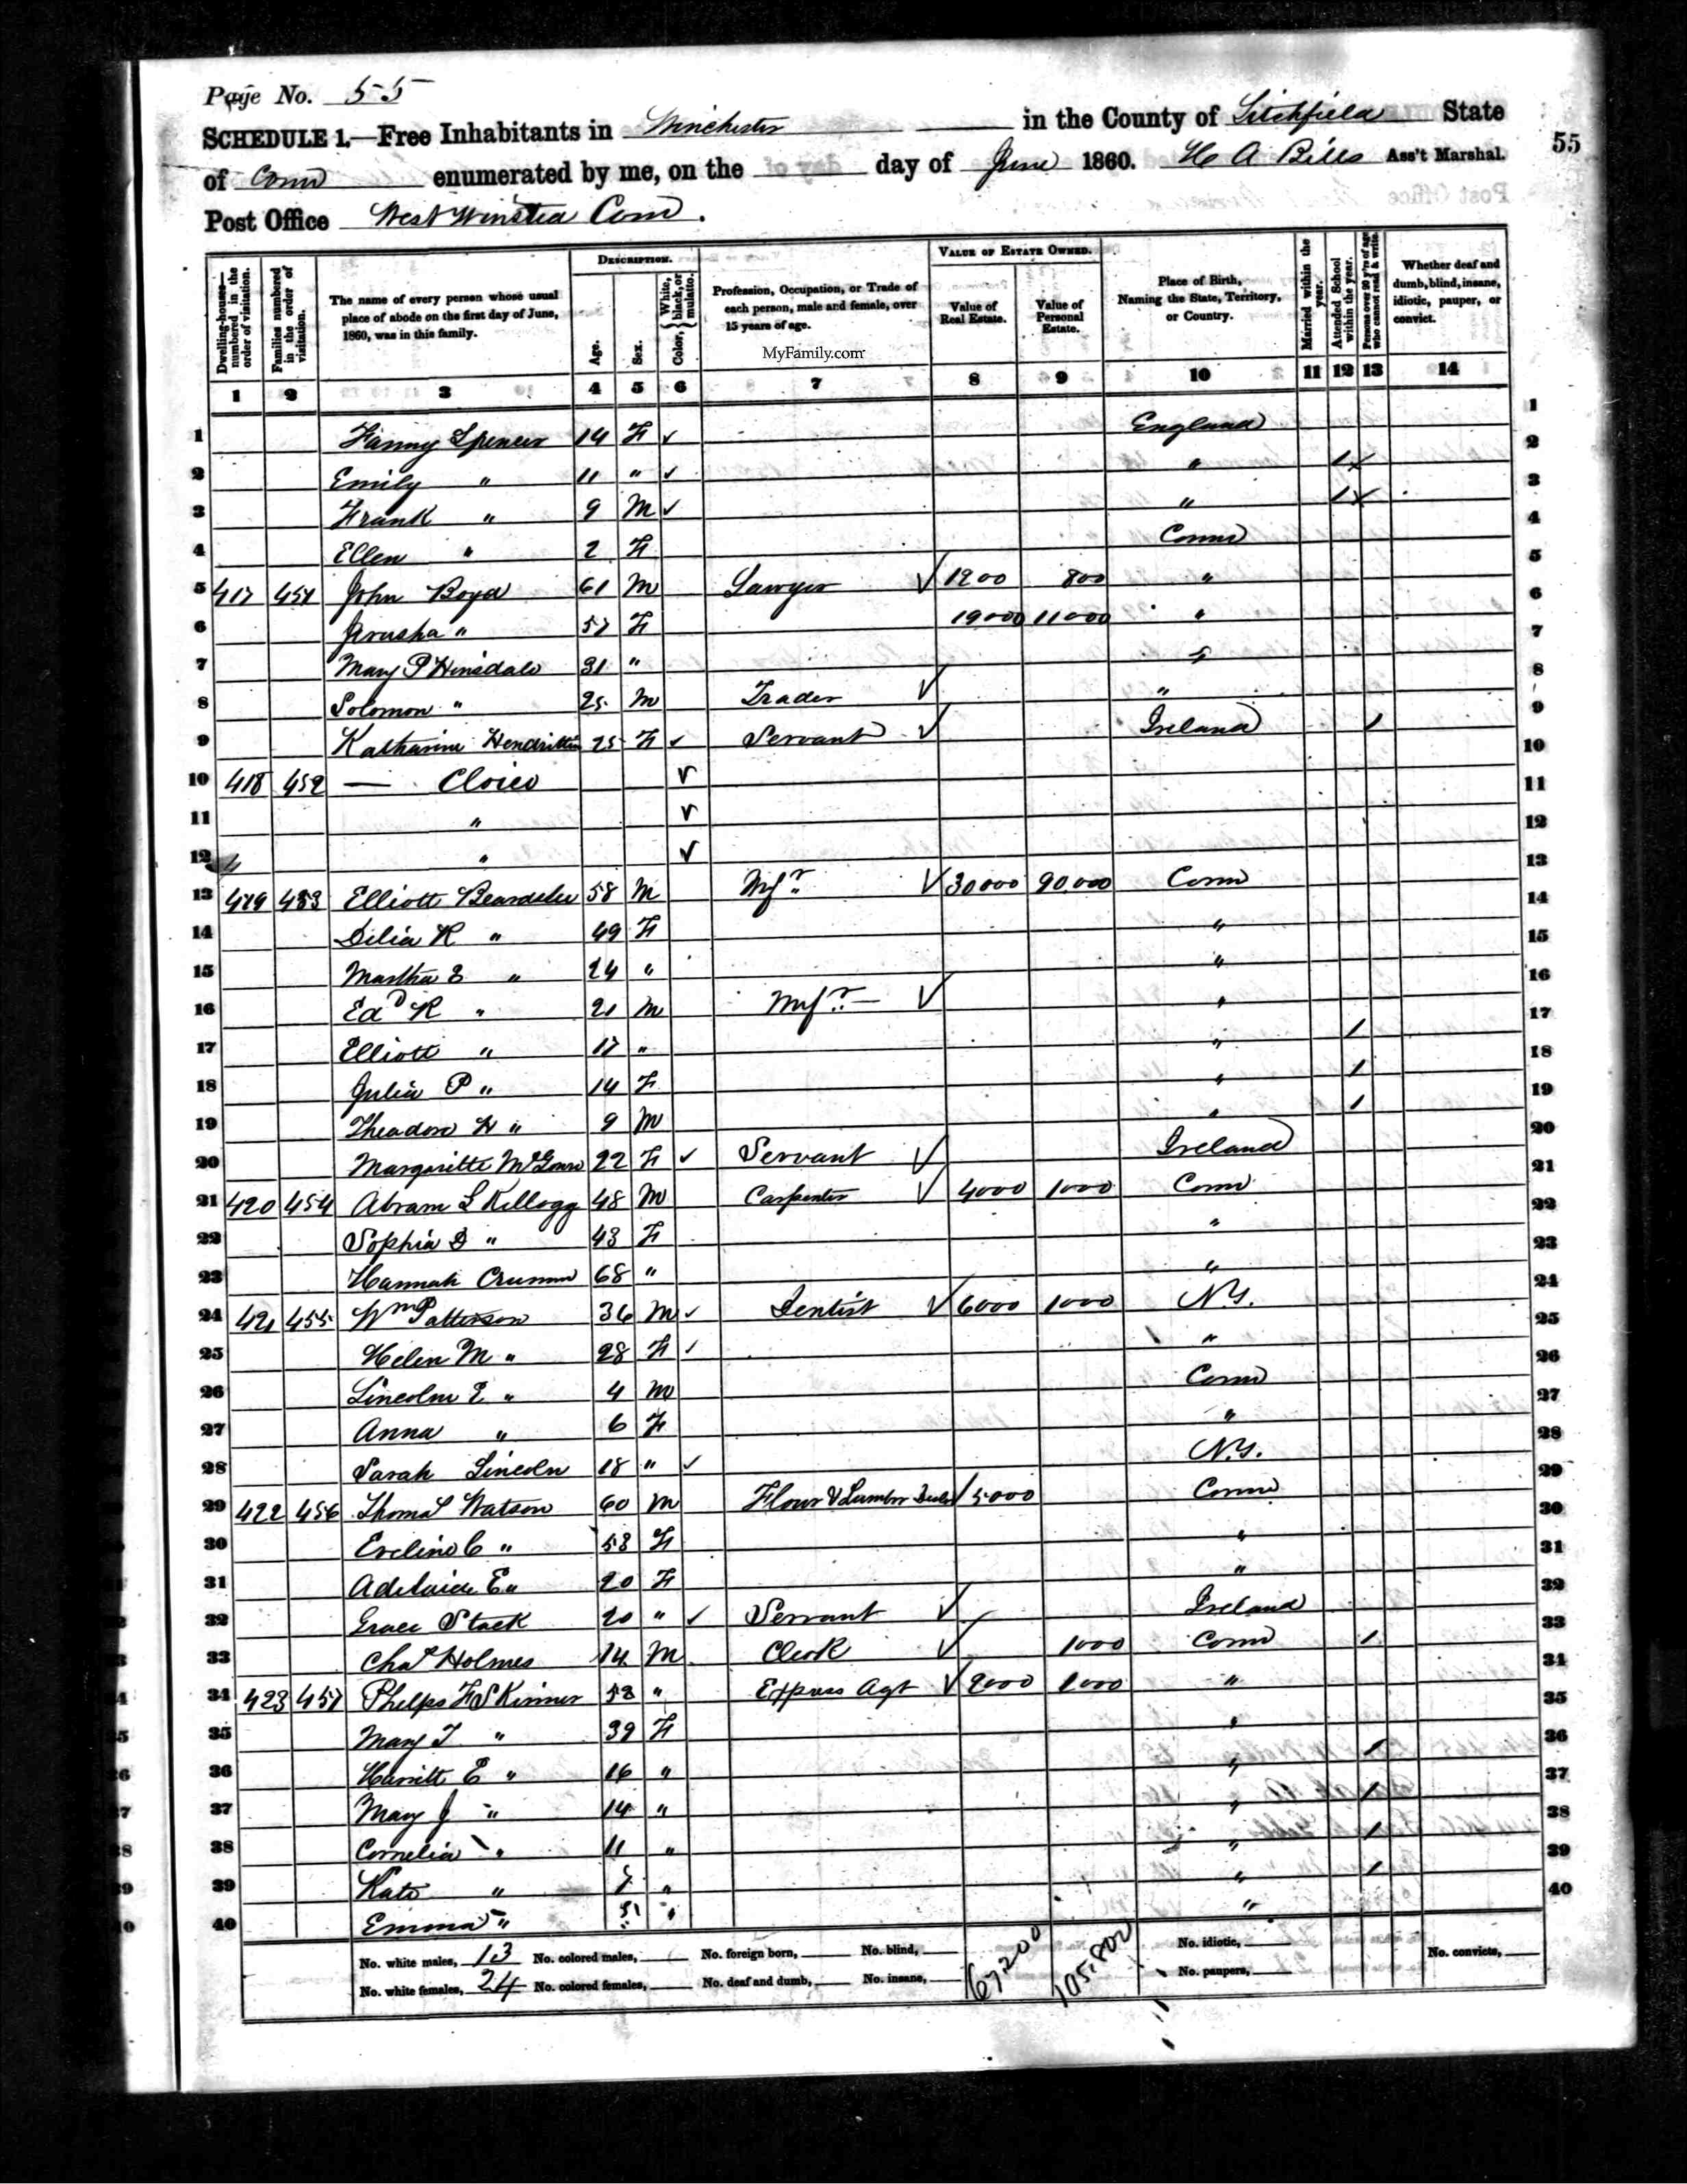 Page No. 55
SCHEDULE 1.—Free Inhabitants in Winchester in the County of Litchfield State
55
of Conn enumerated by me, on the day of June 1860. H A Bills Ass't Marshal.
Post Office West Winsted Conn.
Dwelling-houses—numbered in the order of visitation. Families numbered in the order of visitation. The name of every person whose usual place of abode on the first day of June, 1860, was in this family. DESCRIPTION. Age. Sex. Color, { White, black, or mulatto. Profession, Occupation, or Trade of each person, male and female, over 15 years of age. VALUE OF ESTATE OWNED. Value of Real Estate. Value of Personal Estate. Place of Birth, Naming the State, Territory, or Country. Married within the year. Attended School within the year. Persons over 20 y'rs of age who cannot read & write. Whether deaf and dumb, blind, insane, idiotic, pauper, or convict.
MyFamily.com
1 2 3 4 5 6 7 8 9 10 11 12 13 14
1 Fanny Spencer 14 F ✓ England 1
2 Emily " 11 " ✓ " 1 2
3 Frank " 9 M ✓ " 1 3
4 Ellen " 2 F Conn 4
5 417 451 John Boyd 61 M Lawyer ✓ 1200 800 " 5
6 Jerusha " 57 F 19000 11000 " 6
7 Mary P Hinsdale 31 " " 7
8 Solomon " 25 M Trader ✓ " 8
9 Katharine 25 F ✓ Servant ✓ Ireland 1 9
10 418 452 — Closed ✓ 10
11 " ✓ 11
12 " ✓ 12
13 419 453 Elliott Beardslee 58 M Mfr ✓ 30000 90000 Conn 13
14 Delia R " 49 F " 14
15 Martha E " 24 " " 15
16 Ed R " 21 M Mfr ✓ " 16
17 Elliott " 17 " " 1 17
18 Julia P " 14 F " 1 18
19 Theadore H " 9 M " 1 19
20 Margaritte 22 F ✓ Servant ✓ Ireland 20
21 420 454 Abram L Kellogg 48 M Carpenter ✓ 4000 1000 Conn 21
22 Sophia D " 43 F " 22
23 Hannah 68 " " 23
24 421 455 Wm Patterson 36 M ✓ Dentist ✓ 6000 1000 N.Y. 24
25 Helen M " 28 F ✓ " 25
26 Lincoln E " 4 M Conn 26
27 Anna " 6 F " 27
28 Sarah Lincoln 18 " ✓ N.Y. 28
29 422 456 Thomas Watson 60 M Flour & Lumber 5000 Conn 29
30 Eveline C " 58 F " 30
31 Adelaide E " 20 F " 31
32 Grace Stack 20 " ✓ Servant ✓ Ireland 32
33 Chas Holmes 14 M Clerk ✓ 1000 Conn 1 33
34 423 457 Phelps H Skinner 53 " Express Agt ✓ 2000 2000 " 34
35 Mary T " 39 F " 35
36 Harriett E " 16 " " 1 36
37 Mary J " 14 " " 1 37
38 Cornelia " 11 " " 1 38
39 Kate " 7 " " 1 39
40 Emma " " " 40
No. white males, 13 No. colored males, No. foreign born, No. blind, 67,200 105,800 No. idiotic, No. convicts,
No. white females, 24 No. colored females, No. deaf and dumb, No. insane, No. paupers,